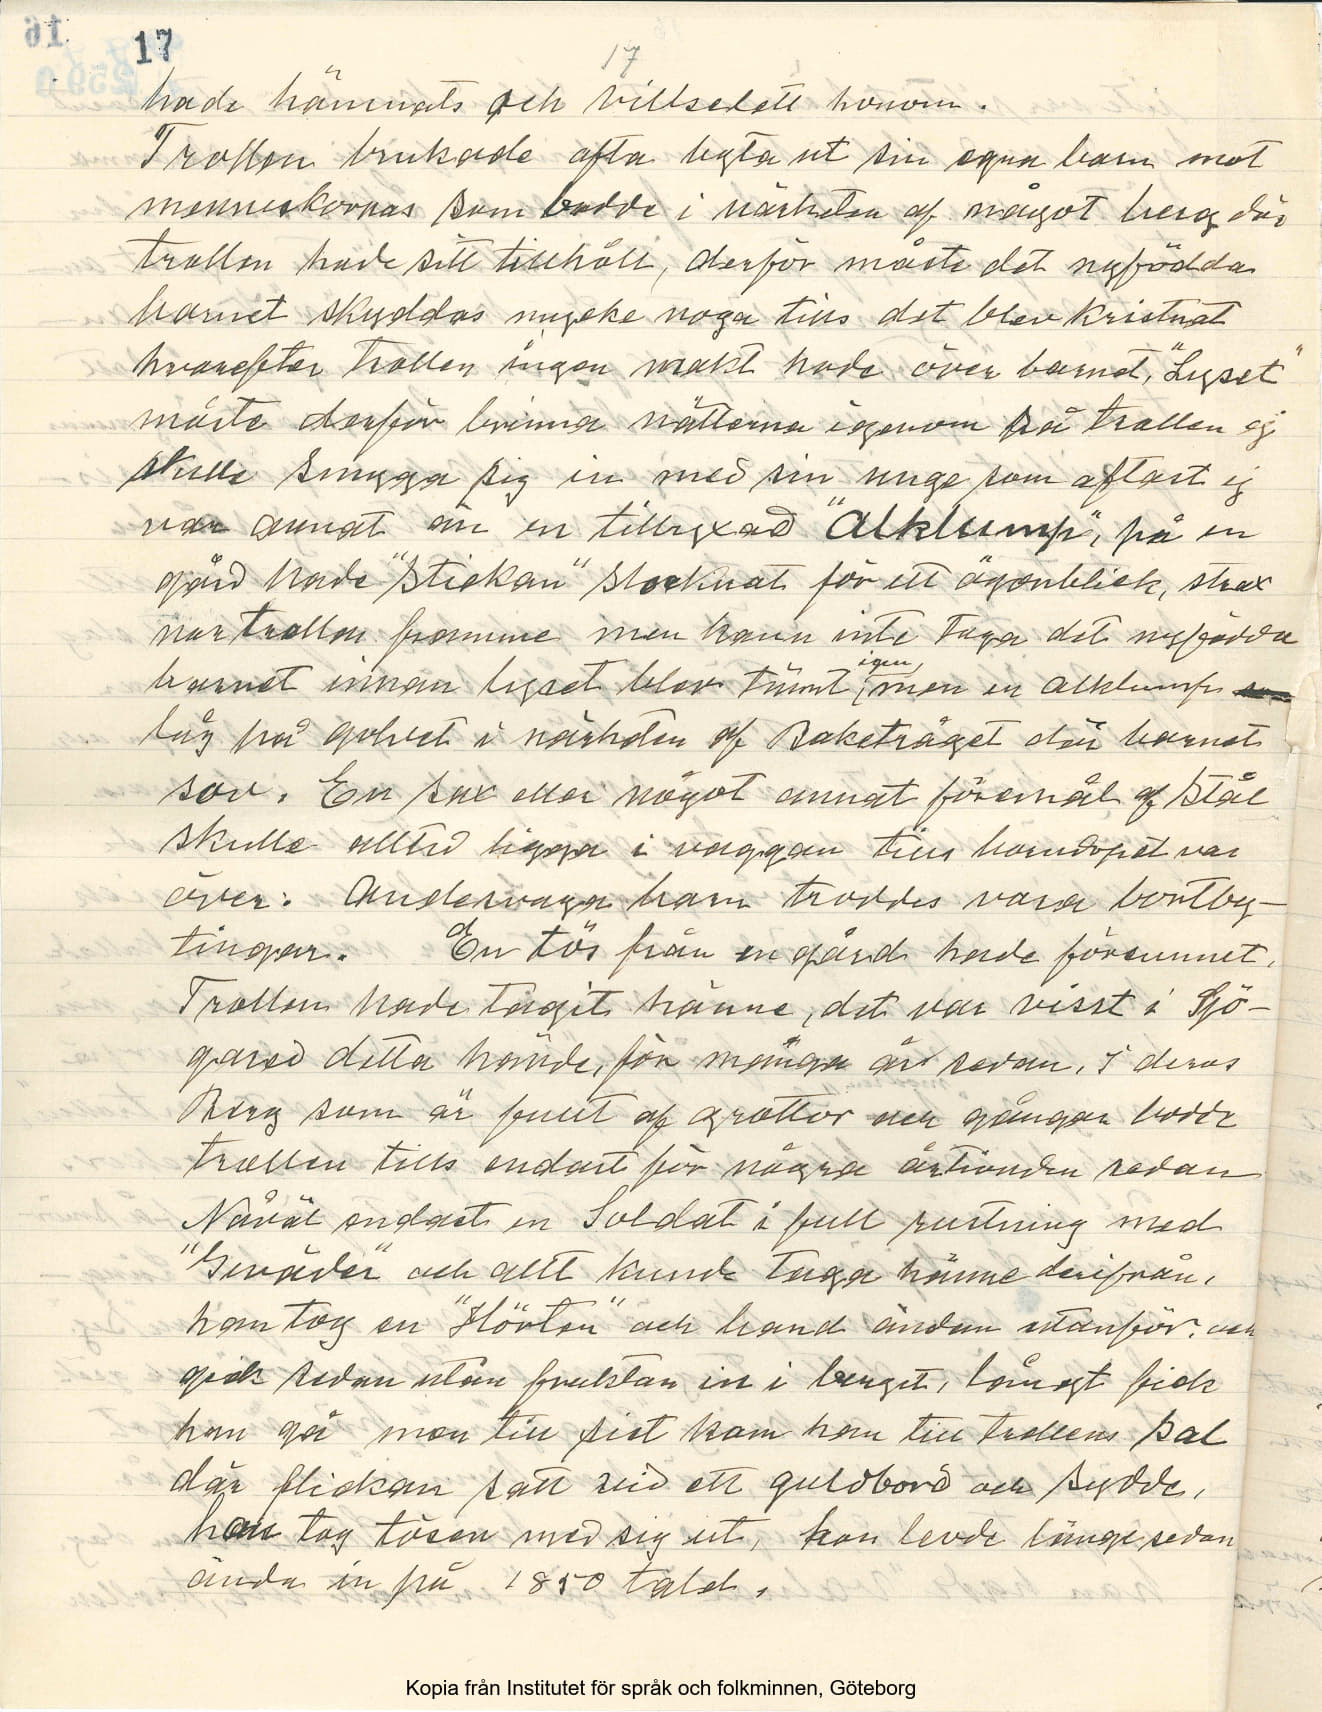 17
17
hade hämnats och villseledt honom.
Trollen brukade ofta byta ut sin egna barn mot
menneskornas som bodde i närheten af något berg där
trollen hade sitt tillhåll, derför måste det nyfödda
barnet skyddas mycke noga tills det blev kristnat
hvarefter trollen ingen makt hade över barnet, "Lyset"
måste derför brinna nätterna igenom så trollen ej
skulle smyga sig in med sin unge som oftast ej
var annat än en tillyxad "Alklump", på en
gård hade "stickan" slocknat för ett ögonblick, strax
var trollen framme men hann inte taga det nyfödda
barnet innan lyset blev tännt igen, men en alklump
låg på golvet i närheten af Baketråget där barnet
sov. En sax eller något annat föremål af stål
skulle alltid ligga i vaggan tills barndopet var
över. Andervaga barn troddes vara bortby-
tingar. En tös från en gård hade försunnet,
Trollen hade tagit hänne, det var visst i Sjö-
gared detta hände, för många år sedan, i deras
Berg som är fullt af grottor och gångar bodde
trollen tills endast för några årtionden sedan
Nåväl endast en Soldat i full rustning med
"Geväder" och allt kunde taga hänne derifrån,
han tog en "Hörten" och band ändan utanför. och
gick sedan utan fruktan in i berget, långt fick
han gå men till sist kom han till trollens sal
där flickan satt vid ett guldbord och sydde,
han tog tösen med sig ut, hon levde länge sedan
ända in på 1850 talet.
Kopia från Institutet för språk och folkminnen, Göteborg